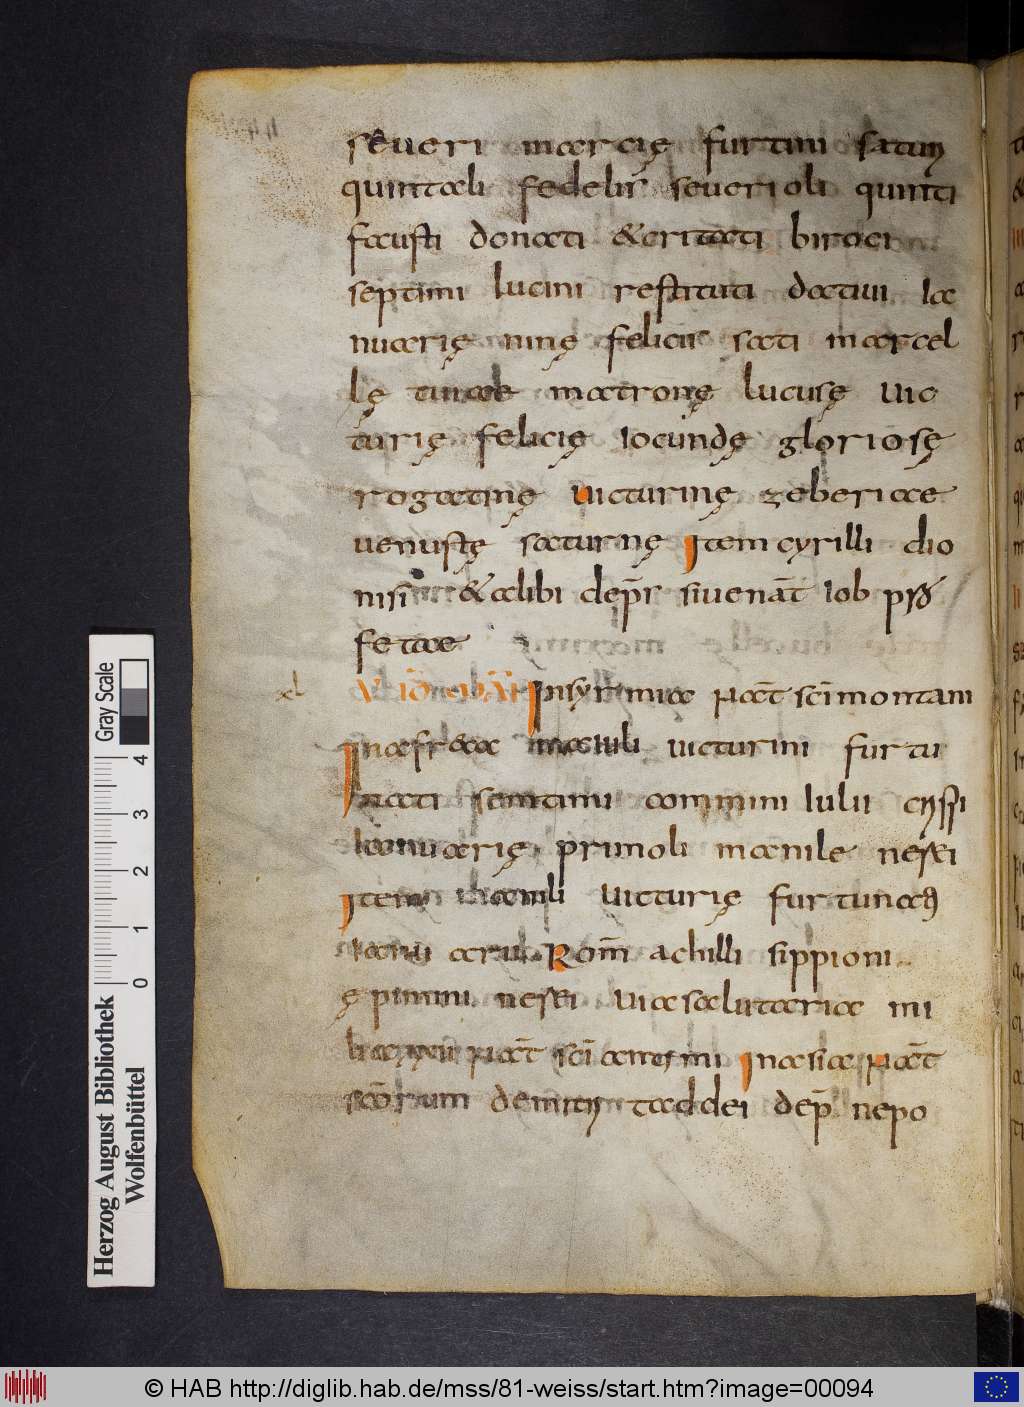 seueri marcię furtuni saturn
quintali fedelis seuerioli quinti
fausti donati &eritati biroci
septimi lucini restituti datiui Ia
nuarię ninę felicis sati marcel
lę matronę lucusę uic
turię felicię iocundę gloriosę
rogatinę uicturinę zebericae
uenustę saturnę Item cyrilli dio
nisi &alibi dep̄r siuenāt iob pro
fetae
xl
Insyrmia nat̄ sc̄i montani
Inafr&a maciuli uicturini furtu
nati septimi commini Iulii
Ianuarię primoli manile nessei
Item manili uicturię furtunati
Rom̄ achilli sippioni
ępimini nessei uia salutaria mi
nat̄ sc̄i Inasia nat̄
sc̄orum demitri taddei dep̄ nepo
Gray Scale
4
3
2
1
0
Herzog August Bibliothek
Wolfenbüttel
© HAB http://diglib.hab.de/mss/81-weiss/start.htm?image=00094